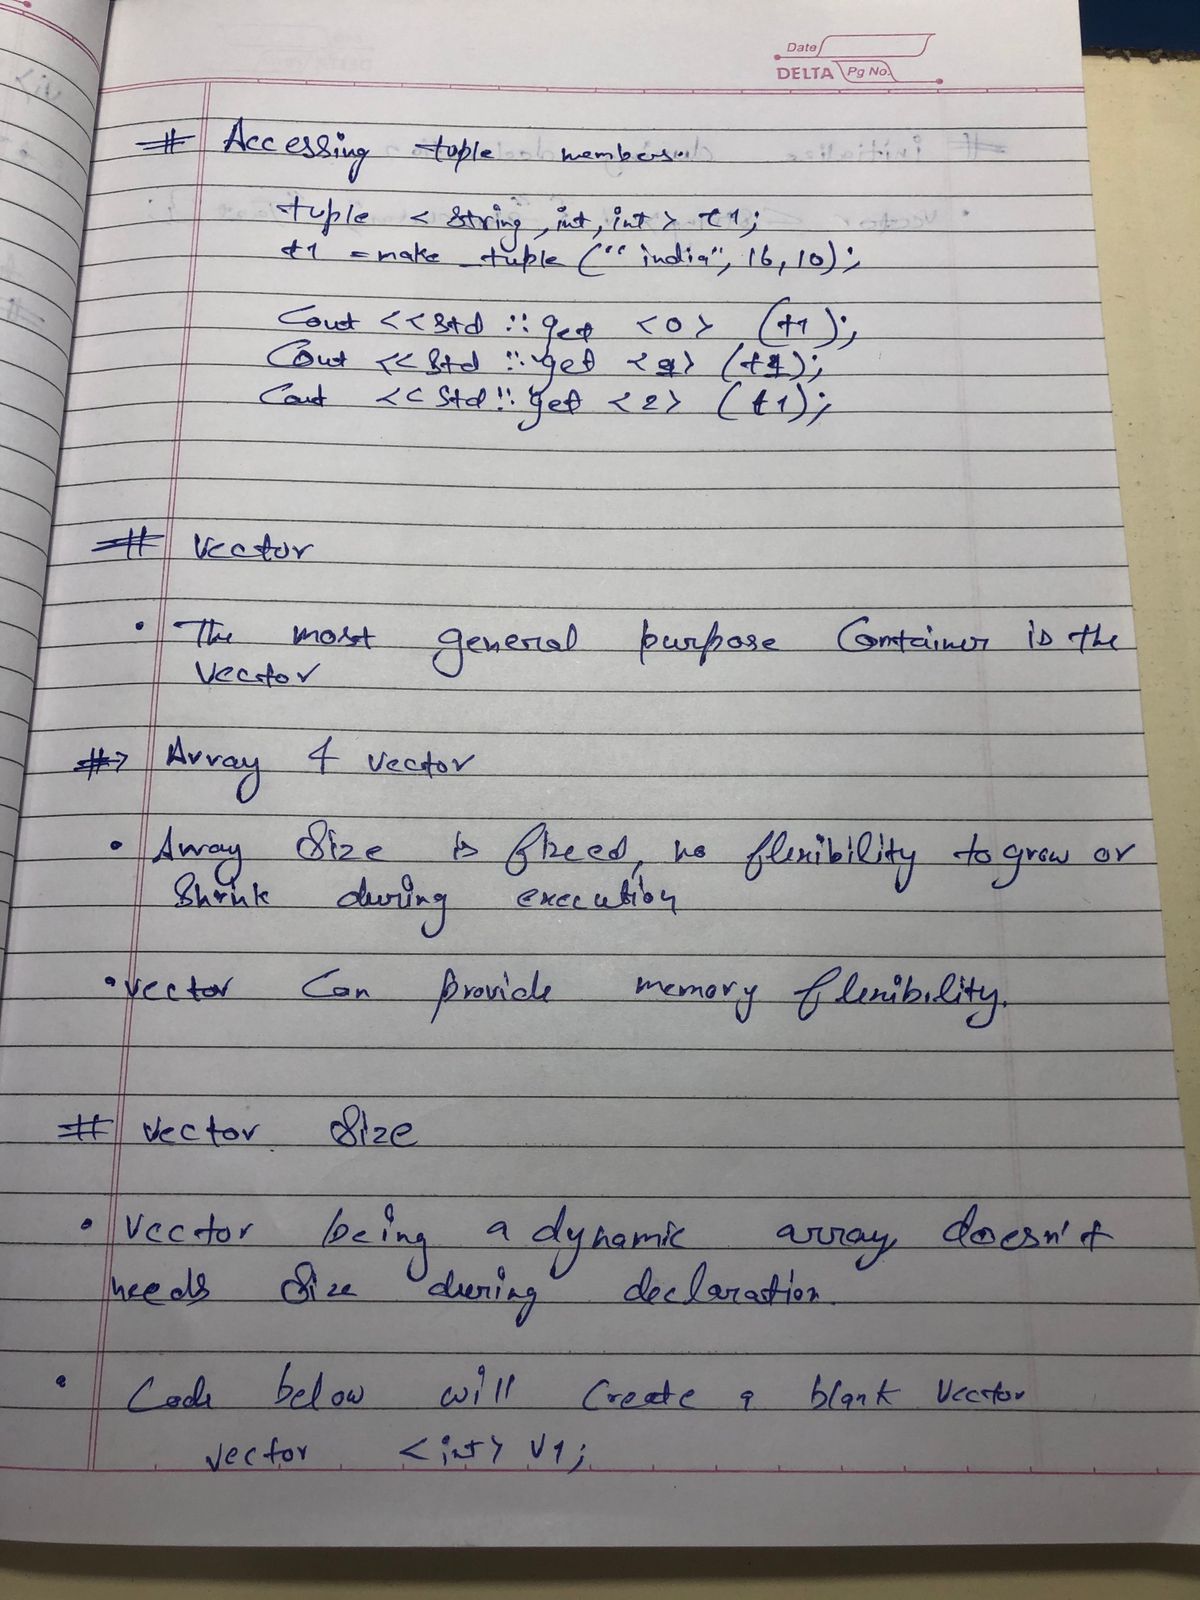 Date
DELTA Pg No.
# Accessing tuple members.
tuple < string, int, int > t1;
t1 = make_tuple ("india", 16, 10);
Cout << std :: get <0> (t1);
Cout << std :: get <1> (t1);
Cout << std :: get <2> (t1);
# Vector
• The most general purpose Container is the
Vector
#→ Array & Vector
• Array Size is fixed, no flexibility to grow or
Shrink during execution
• vector Can provide memory flexibility.
# Vector Size
• Vector being a dynamic array, doesn't
needs Size during declaration.
• Code below will Create a blank Vector
vector <int> V1;